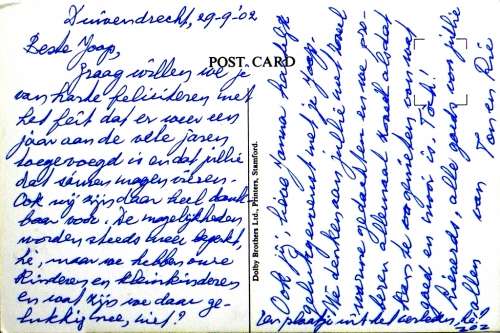 Duivendrecht, 29-9-'02
Beste Joop,
POST CARD
Graag willen we je
van harte feliciteren met
het feit dat er weer een
jaar aan de vele jaren
toegevoegd is en dat jullie
dat samen mogen vieren.
Ook wij zijn daar heel dank-
baar voor. De mogelijkheden
worden steeds meer beperkt,
hè, maar we hebben onze
kinderen en kleinkinderen
en wat zijn we daar ge-
lukkig mee, niet?
Dolby Brothers Ltd., Printers, Stamford.
Ook jij, lieve Hanna hartelijk
gelukgewenst met je Joop.
We denken aan jullie met heel
warme gedachten en we pro-
beren allemaal zoveel als dat
kan te genieten van wat
goed en mooi is. Toch!
Lieverds, alle goeds voor jullie
allen van Ton en Rie
Een plaatje uit het verleden, hè?